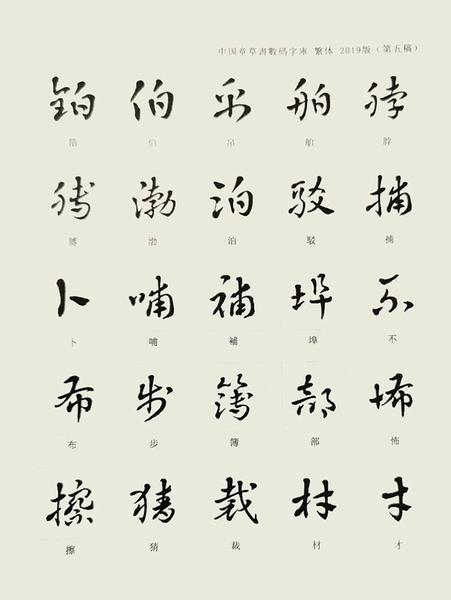 中国章草書數碼字庫 繁体 2019版（第五稿）
鉑 伯 帛 舶 脖
伯 帛 舶 脖
膊 渤 泊 駁 捕
膊 渤 泊 駁 捕
卜 哺 補 埠 不
卜 哺 補 埠 不
布 步 簿 部 怖
布 步 簿 部 怖
擦 猜 裁 材 才
擦 猜 裁 材 才